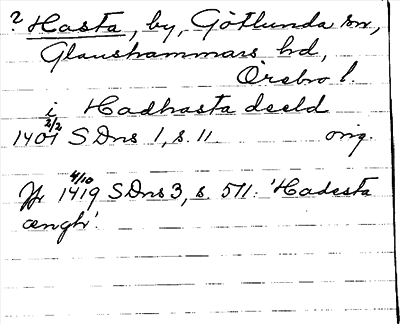 ? Hasta, by, Götlunda sn,
Glanshammars hd,
Örebro l.
i Hadhasta deeld
2/2
1401 SDns 1, s. 11 orig.
4/10
Jr 1419 SDns 3, s. 511. 'Hadesta
ængh'.